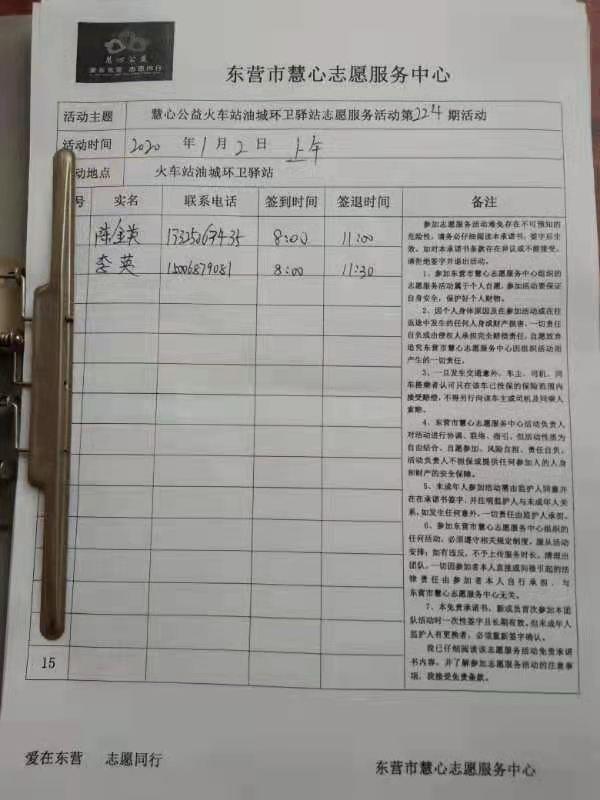 慧心公益
爱在东营 志愿同行
东营市慧心志愿服务中心
活动主题 慧心公益火车站油城环卫驿站志愿服务活动第224期活动
活动时间 2020 年 1 月 2 日 上午
动地点 火车站油城环卫驿站
号 实名 联系电话 签到时间 签退时间 备注
陈金英 8:00 11:00
李英 15006879081 8:00 11:30
参加志愿服务活动难免存在不可预知的
危险性，请务必仔细阅读本承诺书，签字后生
效。如对本承诺书条款存在异议或不能接受，
请拒绝签字并退出活动。
1、参加东营市慧心志愿服务中心组织的
志愿服务活动属于个人自愿，参加活动要保证
自身安全，保护好个人财物。
2、因个人身体原因及在参加活动或在往
返途中发生的任何人身或财产损害，一切责任
自负或由侵权人承担完全赔偿责任，自愿放弃
追究东营市慧心志愿服务中心因组织活动而
产生的一切责任。
3、一旦发生交通意外，车主、司机、同
车搭乘者认可只在该车已投保的保险范围内
接受赔偿，不得另行向该车主或司机及同乘人
索赔。
4、东营市慧心志愿服务中心活动负责人
对活动进行协调、联络、指引，但活动性质为
自由结合、自愿参加、风险自担、责任自负，
活动负责人不担保或提供任何参加人的人身
和财产的安全保障。
5、未成年人参加活动需由监护人同意并
在在承诺书签字，并注明监护人与未成年人关
系，如发生任何意外，一切责任由监护人承担。
6、参加东营市慧心志愿服务中心组织的
任何活动，必须遵守相关规定制度，服从活动
安排；如有违反，不予上传服务时长，清理出
团队。一切因参加者本人直接或间接引起的法
律责任由参加者本人自行承担，与
东营市慧心志愿服务中心无关。
7、本免责承诺书，新成员首次参加本团
队活动时一次性签字且长期有效。但未成年人
监护人有更换者，必须重新签字确认。
我已仔细阅读该志愿服务活动免责承诺
书内容，并了解参加志愿服务活动的注意事
项，我接受免责条款。
15
爱在东营 志愿同行
东营市慧心志愿服务中心